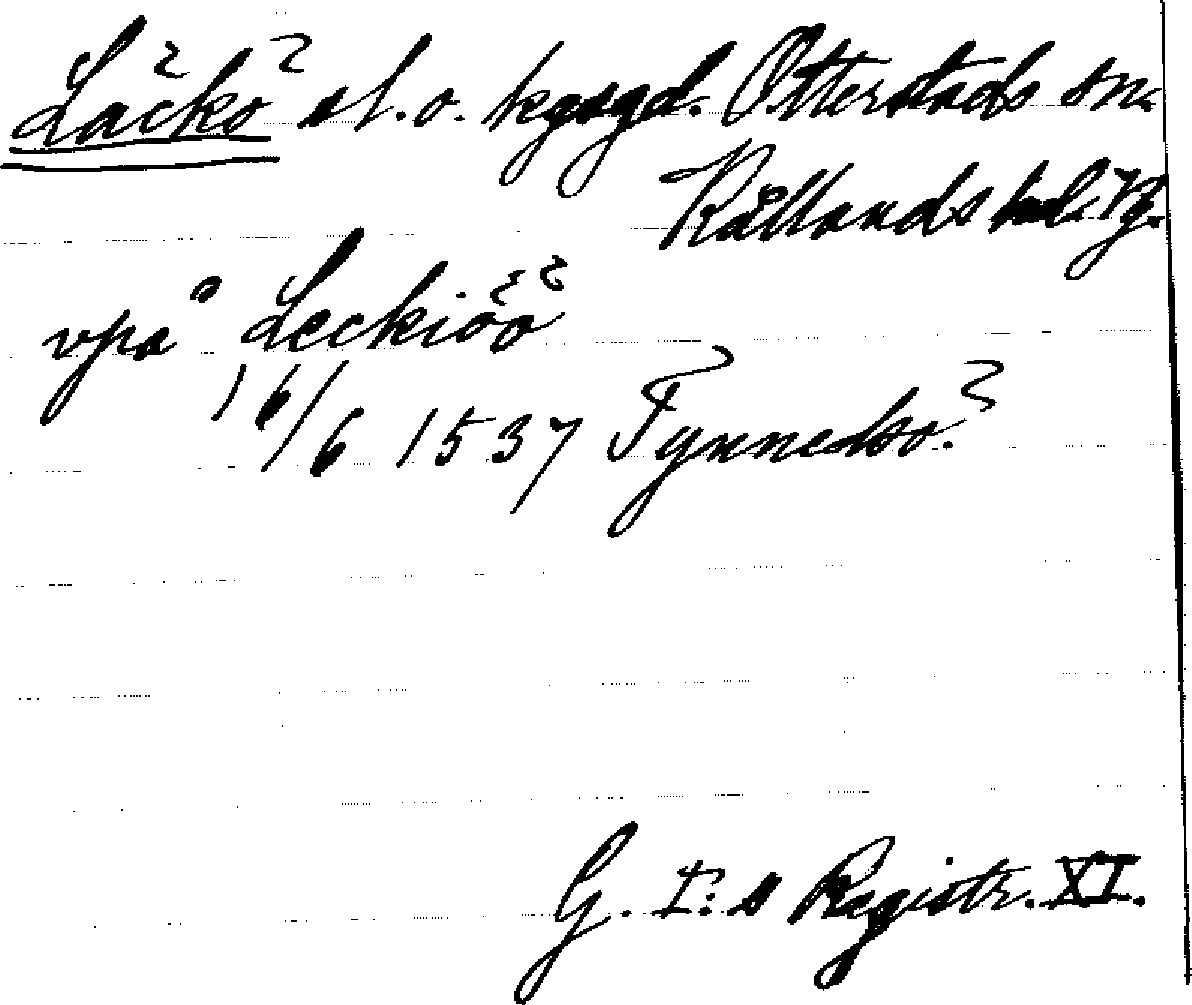 Läckö sl. o. kgsgd. Otterstads sn.
Kållands hd. Vg.
vpå Leckiöö
16/6 1537 Tynnelsö.
G. I:s Registr. XI.